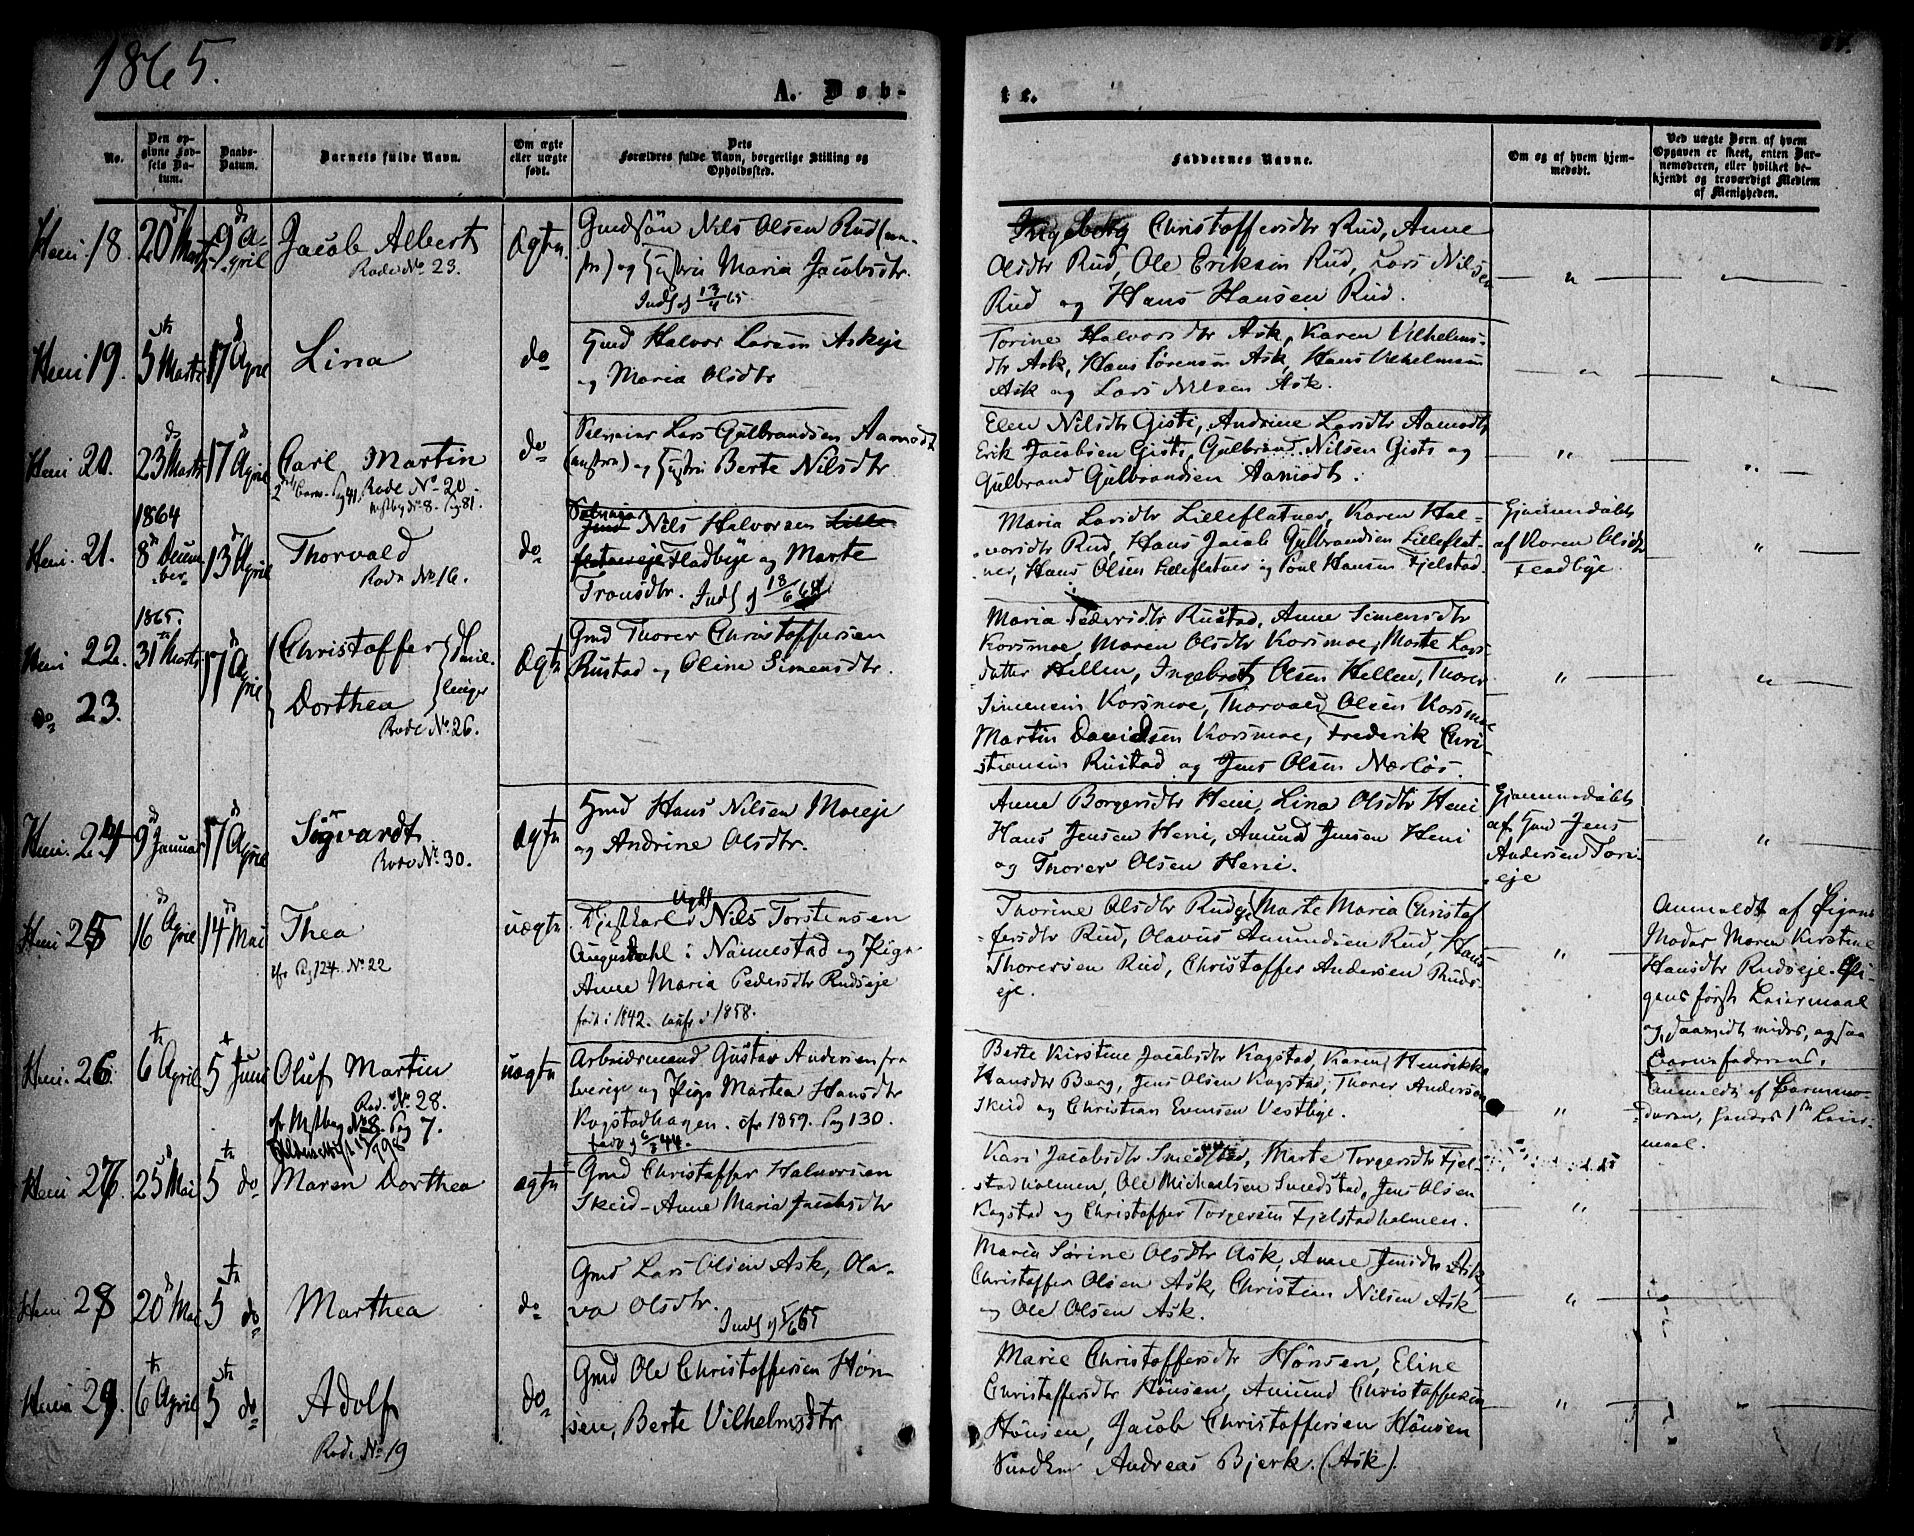 1865.
A. Døb-
te.
No.
Den opgivne Fødselsdatum.
Daabs-Datum.
Barnets fulde Navn.
Om ægte eller uægte født.
Dets Forældres fulde Navn, borgerlige Stilling og Opholdssted.
Faddernes Navne.
Om og af hvem hjemmedøbt.
Ved uægte Børn af hvem Opgaven er skeet, enten Barnemoderen, eller hvilket bekjendt og troværdigt Medlem af Menigheden.
Heni 18. 20de Marts 9de April
Jacob Albert
Rode No. 23.
Ægte
Gmdsøn Nils Olsen Rud
og Hustru Maria Jacobsdtr.
Indf 13/4 65
Ingeborg Christoffersdtr Rud, Anne
Olsdtr Rud, Ole Eriksen Rud, Lars Nilsen
Rud og Hans Hansen Rud.
Heni 19. 5te Marts 17de April
Lina
do
Hmd Halvor Larsen Askeje
og Maria Olsdtr
Torine Halvorsdtr Ask, Karen Vilhelms-
dtr Ask, Hans Sørensen Ask, Hans Vilhelmsen
Ask og Lars Nilsen Ask.
Heni 20. 23de Marts 17de April
Carl Martin
Rode No. 20
No. 8. Pag 81.
do
Selveier Lars Gulbrandsen Aamodt
og Hustru Berte Nilsdtr
Elen Nilsdtr Gisti, Andrine Larsdtr Aamodt,
Erik Jacobsen Gisti, Gulbrand Nilsen Gisti og
Gulbrand Gulbrandsen Aamodt.
1864
Heni 21. 8de December 13de April
Thorvald
Rode No 16.
do
Selveier
Gmd Nils Halvorsen Lille-
flatnereje Fladbye og Marte
Tronsdtr. Indf 18/6 64
Maria Larsdtr Lilleflatner, Karen Hal-
vorsdtr Rud, Hans Jacob Gulbrandsen Lilleflat-
ner, Hans Olsen Lilleflatner og Poul Hansen Fjelstad.
Hjemmedøbt
af Karen Olsdtr
Fladbye.
1865.
Heni 22. 31te Marts 17de April
do 23.
Christoffer
Dorthea
Tvil-
linger
Rode No. 26.
Ægte
Gmd Thorer Christoffersen
Rustad og Oline Simensdtr.
Maria Pedersdtr Rustad, Anne Simensdtr
Korsmoe, Maren Olsdtr Korsmoe, Marte Lars-
datter Hellen, Ingebret Olsen Hellen, Thorer
Simensen Korsmoe, Thorvald Olsen Korsmoe
Martin Davidsen Korsmoe, Frederik Chri-
stiansen Rustad og Jens Olsen Nærløs.
Heni 24 9de Januar 17de April
Sigvardt
Rode No. 30.
Ægte
Hmd Hans Nilsen Moeeje
og Andrine Olsdtr.
Anne Borgersdtr Heni, Lina Olsdtr Heni
Hans Jensen Heni, Amund Jensen Heni
og Thorer Olsen Heni.
Hjemmedøbt
af Gmd Jens
Andersen
eje
Heni 25 16de April 14de Mai
Thea
cfr Pag 124. No 22
uægte
Ugift
Nils Torstensen
Augustdahl i Nannestad og Pige
Anne Maria Pedersdtr Rudseje
født i 1842. conf. i 1858.
Thorine Olsdtr Rudseje, Marte Maria Christof-
fersdtr Rud, Olavus Amundsen Rud, Hans
Thorersen Rud, Christoffer Andersen Ruds-
eje.
Anmeldt af Pigens
Moder Maren Kirstine
Hansdtr Rudseje. Pi-
gens første Leiermaal
og saavidt vides, ogsaa
Barnefaderens.
Heni 26. 6te April 5te Juni
Oluf Martin
Rode No 28.
cfr No 8 Pag 7.
uægte
Arbeidsmand Gustav Andersen fra
Sverige og Pige Martea Hansdtr
Kogstadhagen. cfr 1859. Pag 130.
Berte Kirstine Jacobsdtr Kogstad, Karen Henrikke
Hansdtr Berg, Jens Olsen Kogstad, Thorer Andersen
Skeid og Christian Evensen Vestbye.
Anmeldt af Barnemo-
deren, hendes 1ste Leier-
maal.
Heni 27 25de Mai 5te do
Maren Dorthea
ægte
Gmd Christoffer Halvorsen
Skeid - Anne Maria Jacobsdtr
Kari Jacobsdtr Smedstad, Marte Torgersdtr Fjel-
stadholmen, Ole Michaelsen Smedstad, Jens Olsen
Kogstad og Christoffer Torgersen Fjelstadholmen.
Heni 28 20de Mai 5te do
Marthea
do
Gmd Lars Olsen Ask, Ola-
va Olsdtr.
Indf 5/6 65
Maria Sørine Olsdtr Ask, Anne Jensdtr Ask,
Christoffer Olsen Ask, Christian Nilsen Ask
og Ole Olsen Ask.
Heni 29. 6te April 5te do
Adolf
Rode No 19
do
Gmd Ole Christoffersen Høn-
sen, Berte Vilhelmsdtr
Marie Christoffersdtr Hønsen, Eline
Christoffersdtr Hønsen, Amund Christoffersen
Hønsen, Jacob Christoffersen Hønsen
Andreas Bjerk. (Ask).